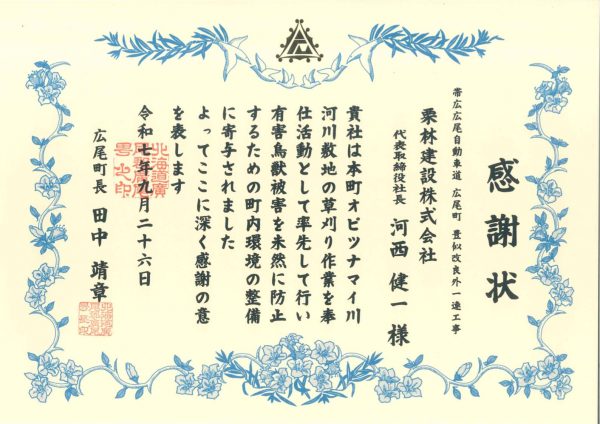 感謝状
帯広広尾自動車道 広尾町 豊似改良外一連工事
栗林建設株式会社
代表取締役社長 河西 健一 様
貴社は本町オピツナマイ川
河川敷地の草刈り作業を奉
仕活動として率先して行い
有害鳥獣被害を未然に防止
するための町内環境の整備
に寄与されました
よってここに深く感謝の意
を表します
令和七年九月二十六日
広尾町長 田中 靖章